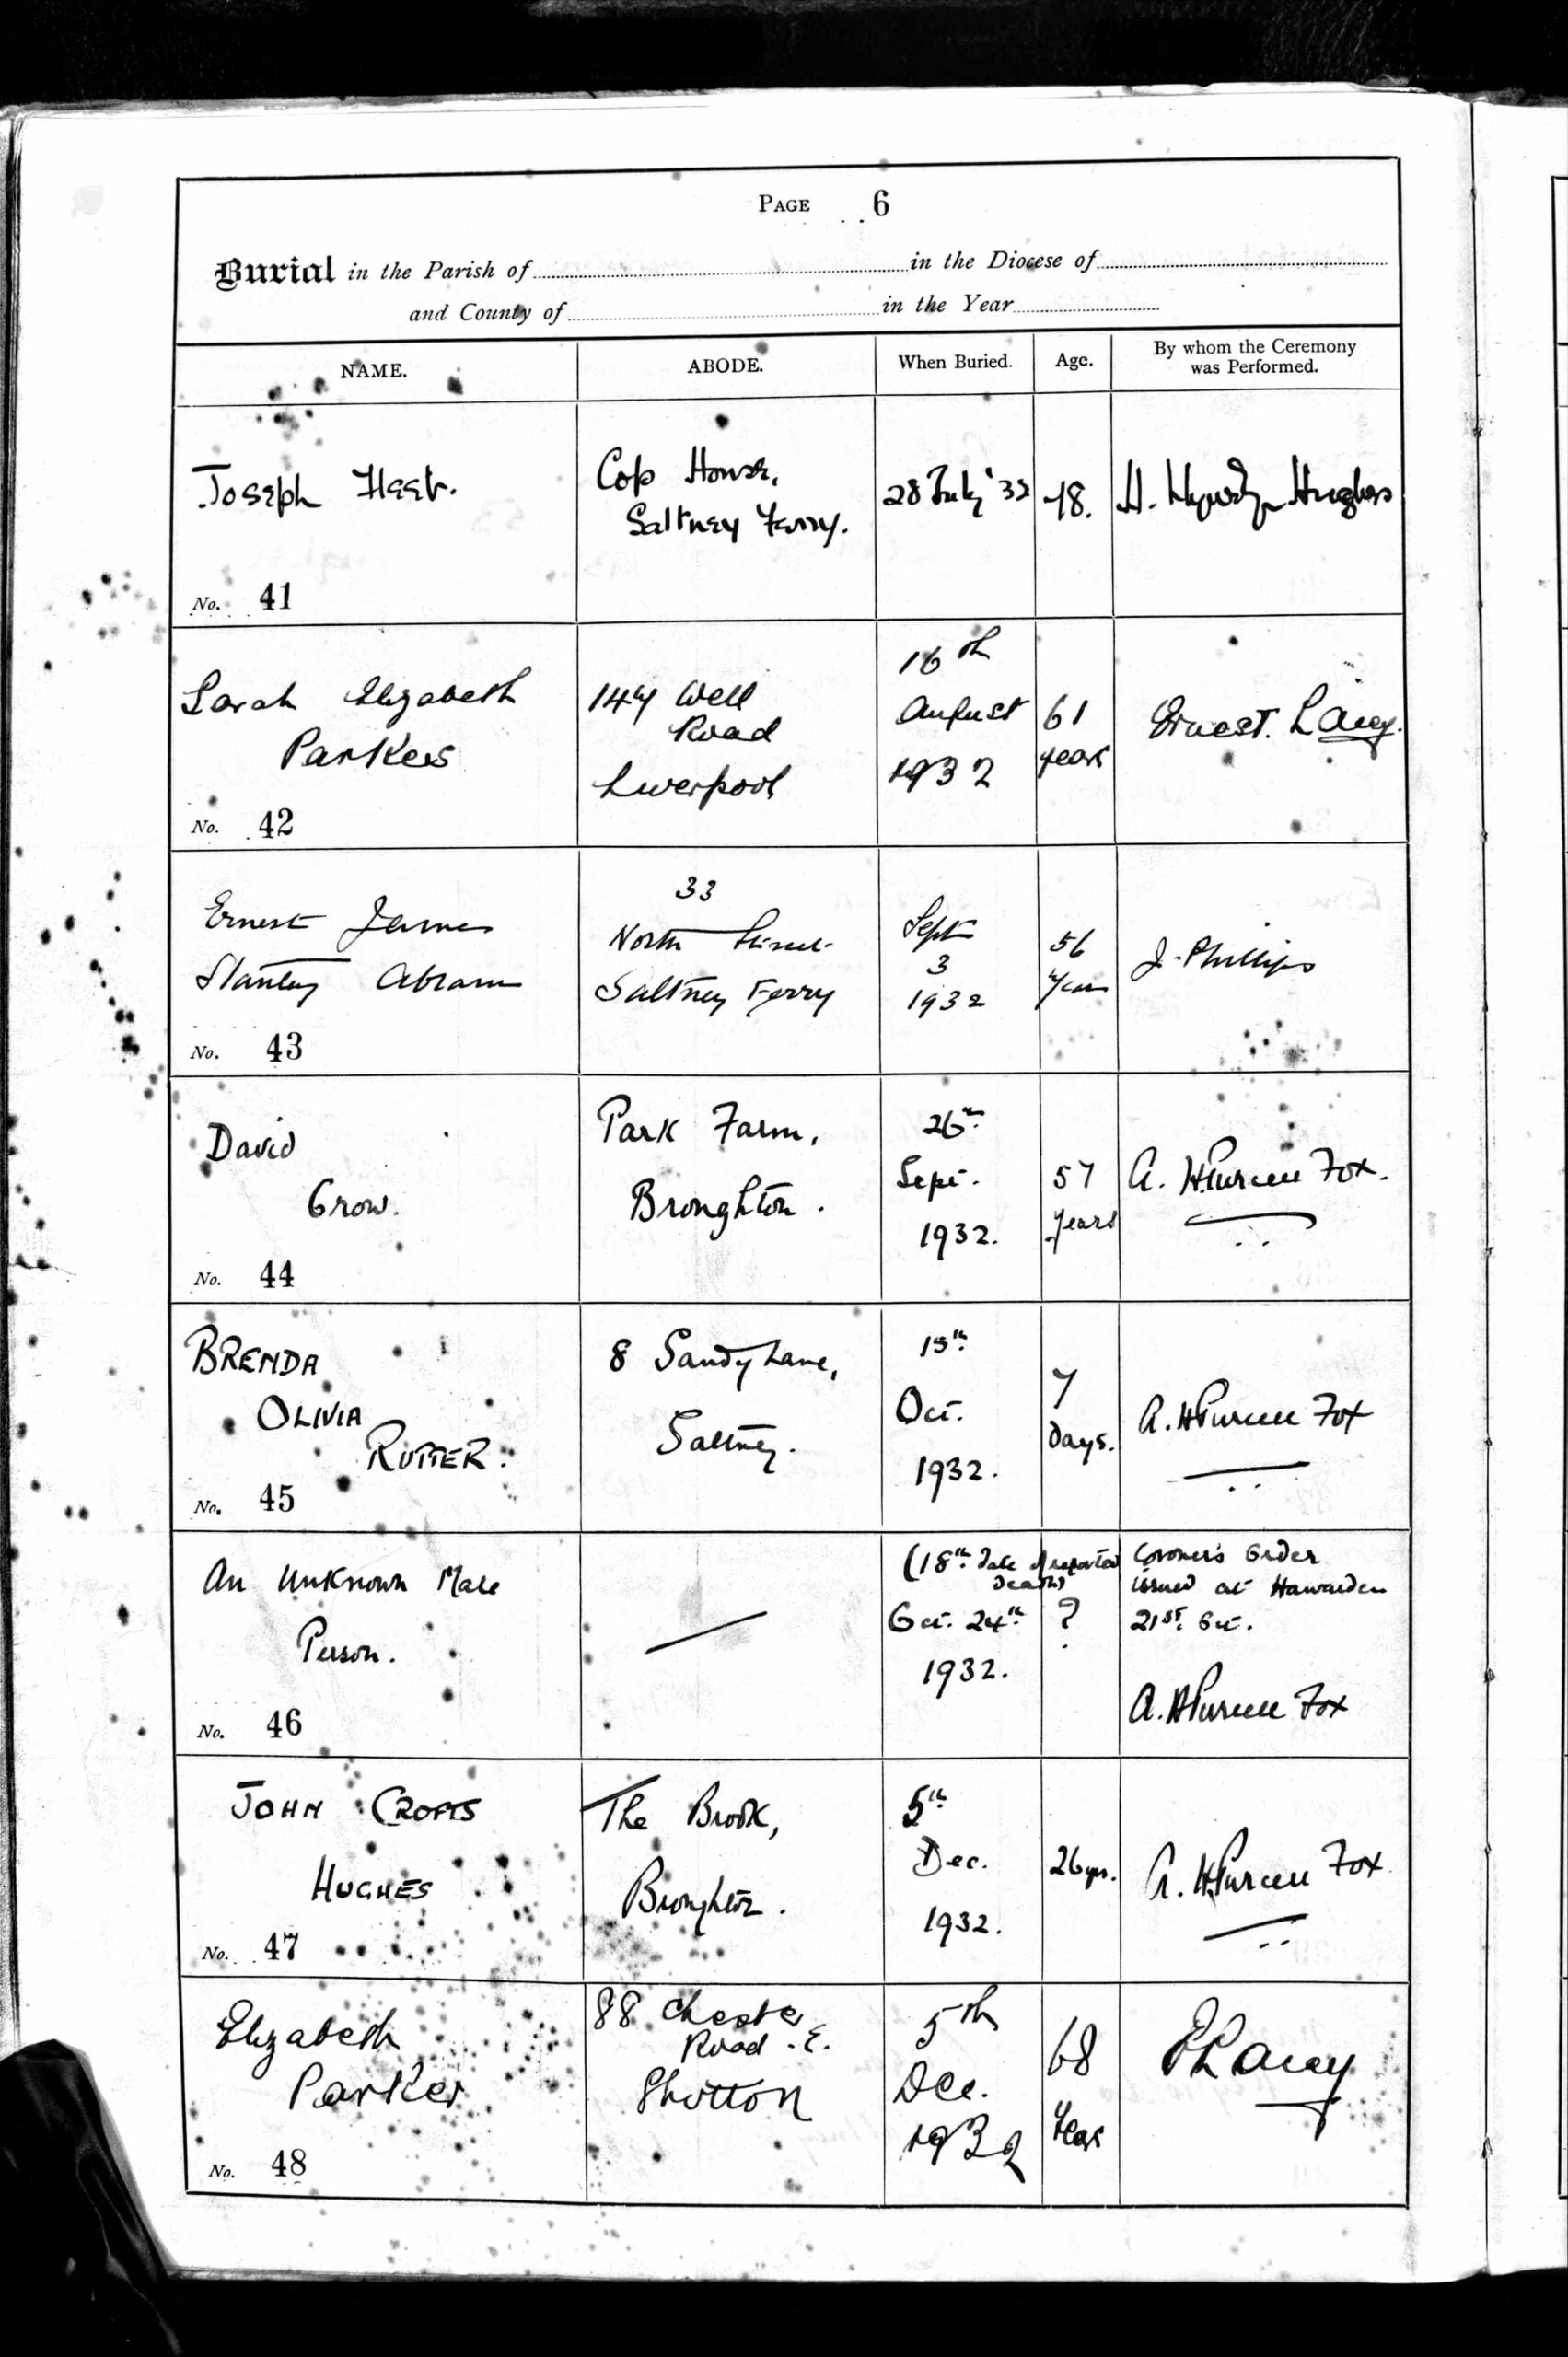 PAGE 6
Burial in the Parish of in the Diocese of
and County of in the Year
NAME. ABODE. When Buried. Age. By whom the Ceremony was Performed.
Joseph
Cop House,
Saltney Ferry.
28 July '32
H. Hughes
No. 41
Sarah Elizabeth
Parker
147 Well
Road
Liverpool
16th
August
1932
61
years
Ernest. Lacey.
No. 42
Ernest James
Stanley Abram
33
North Street
Saltney Ferry
Sept
3
1932
56
years
J. Phillips
No. 43
David
Crow.
Park Farm,
Broughton.
26th
Sept.
1932.
57
years
A. H. Purcell Fox.
No. 44
BRENDA
OLIVIA
RUTTER.
8 Sandy Lane,
Saltney.
15th
Oct.
1932.
7
Days.
A. H. Purcell Fox
No. 45
An Unknown Male
Person.
(18th Date of reported
Death)
Oct. 24th
1932.
?
Coroner's Order
issued at Hawarden
21st. Oct.
A. H. Purcell Fox
No. 46
JOHN CROFTS
HUGHES
The Brook,
Broughton.
5th
Dec.
1932.
26 yrs.
A. H. Purcell Fox
No. 47
Elizabeth
Parker
88 Chester
Road. E.
Shotton
5th
Dec.
1932
68
Years
E Lacey
No. 48